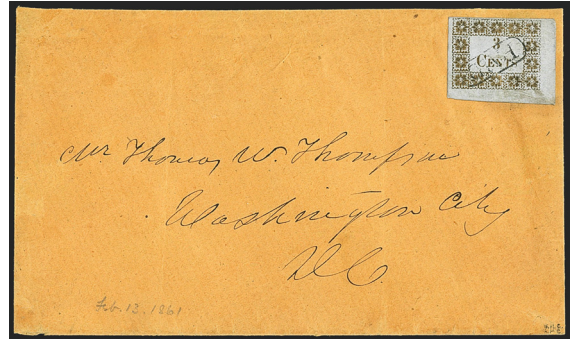 3
CENTS
Mr Thomas W. Thompson
Washington City
D.C.
Feb. 13. 1861